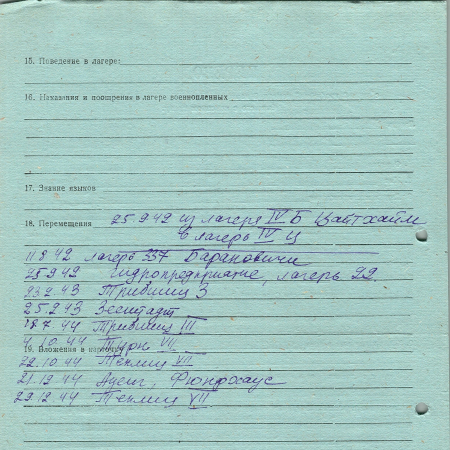 15. Поведение в лагере:
16. Наказания и поощрения в лагере военнопленных
17. Знание языков
18. Перемещения 25.9.42 из лагеря IV Б Цайтхайм
в лагерь IV Ц
11.8.42 лагерь 337 Барановичи
25.9.42 Гидропредприятие, лагерь 22.
23.2.43 Трибшиц 3
25.2.43 Зеештадт
7.44 Трибшиц III
4.10.44 Турн VII
19. Вложения в
22.10.44 Теплиц VII
21.12.44 Аусиг, Фюнфхаус
29.12.44 Теплиц VII